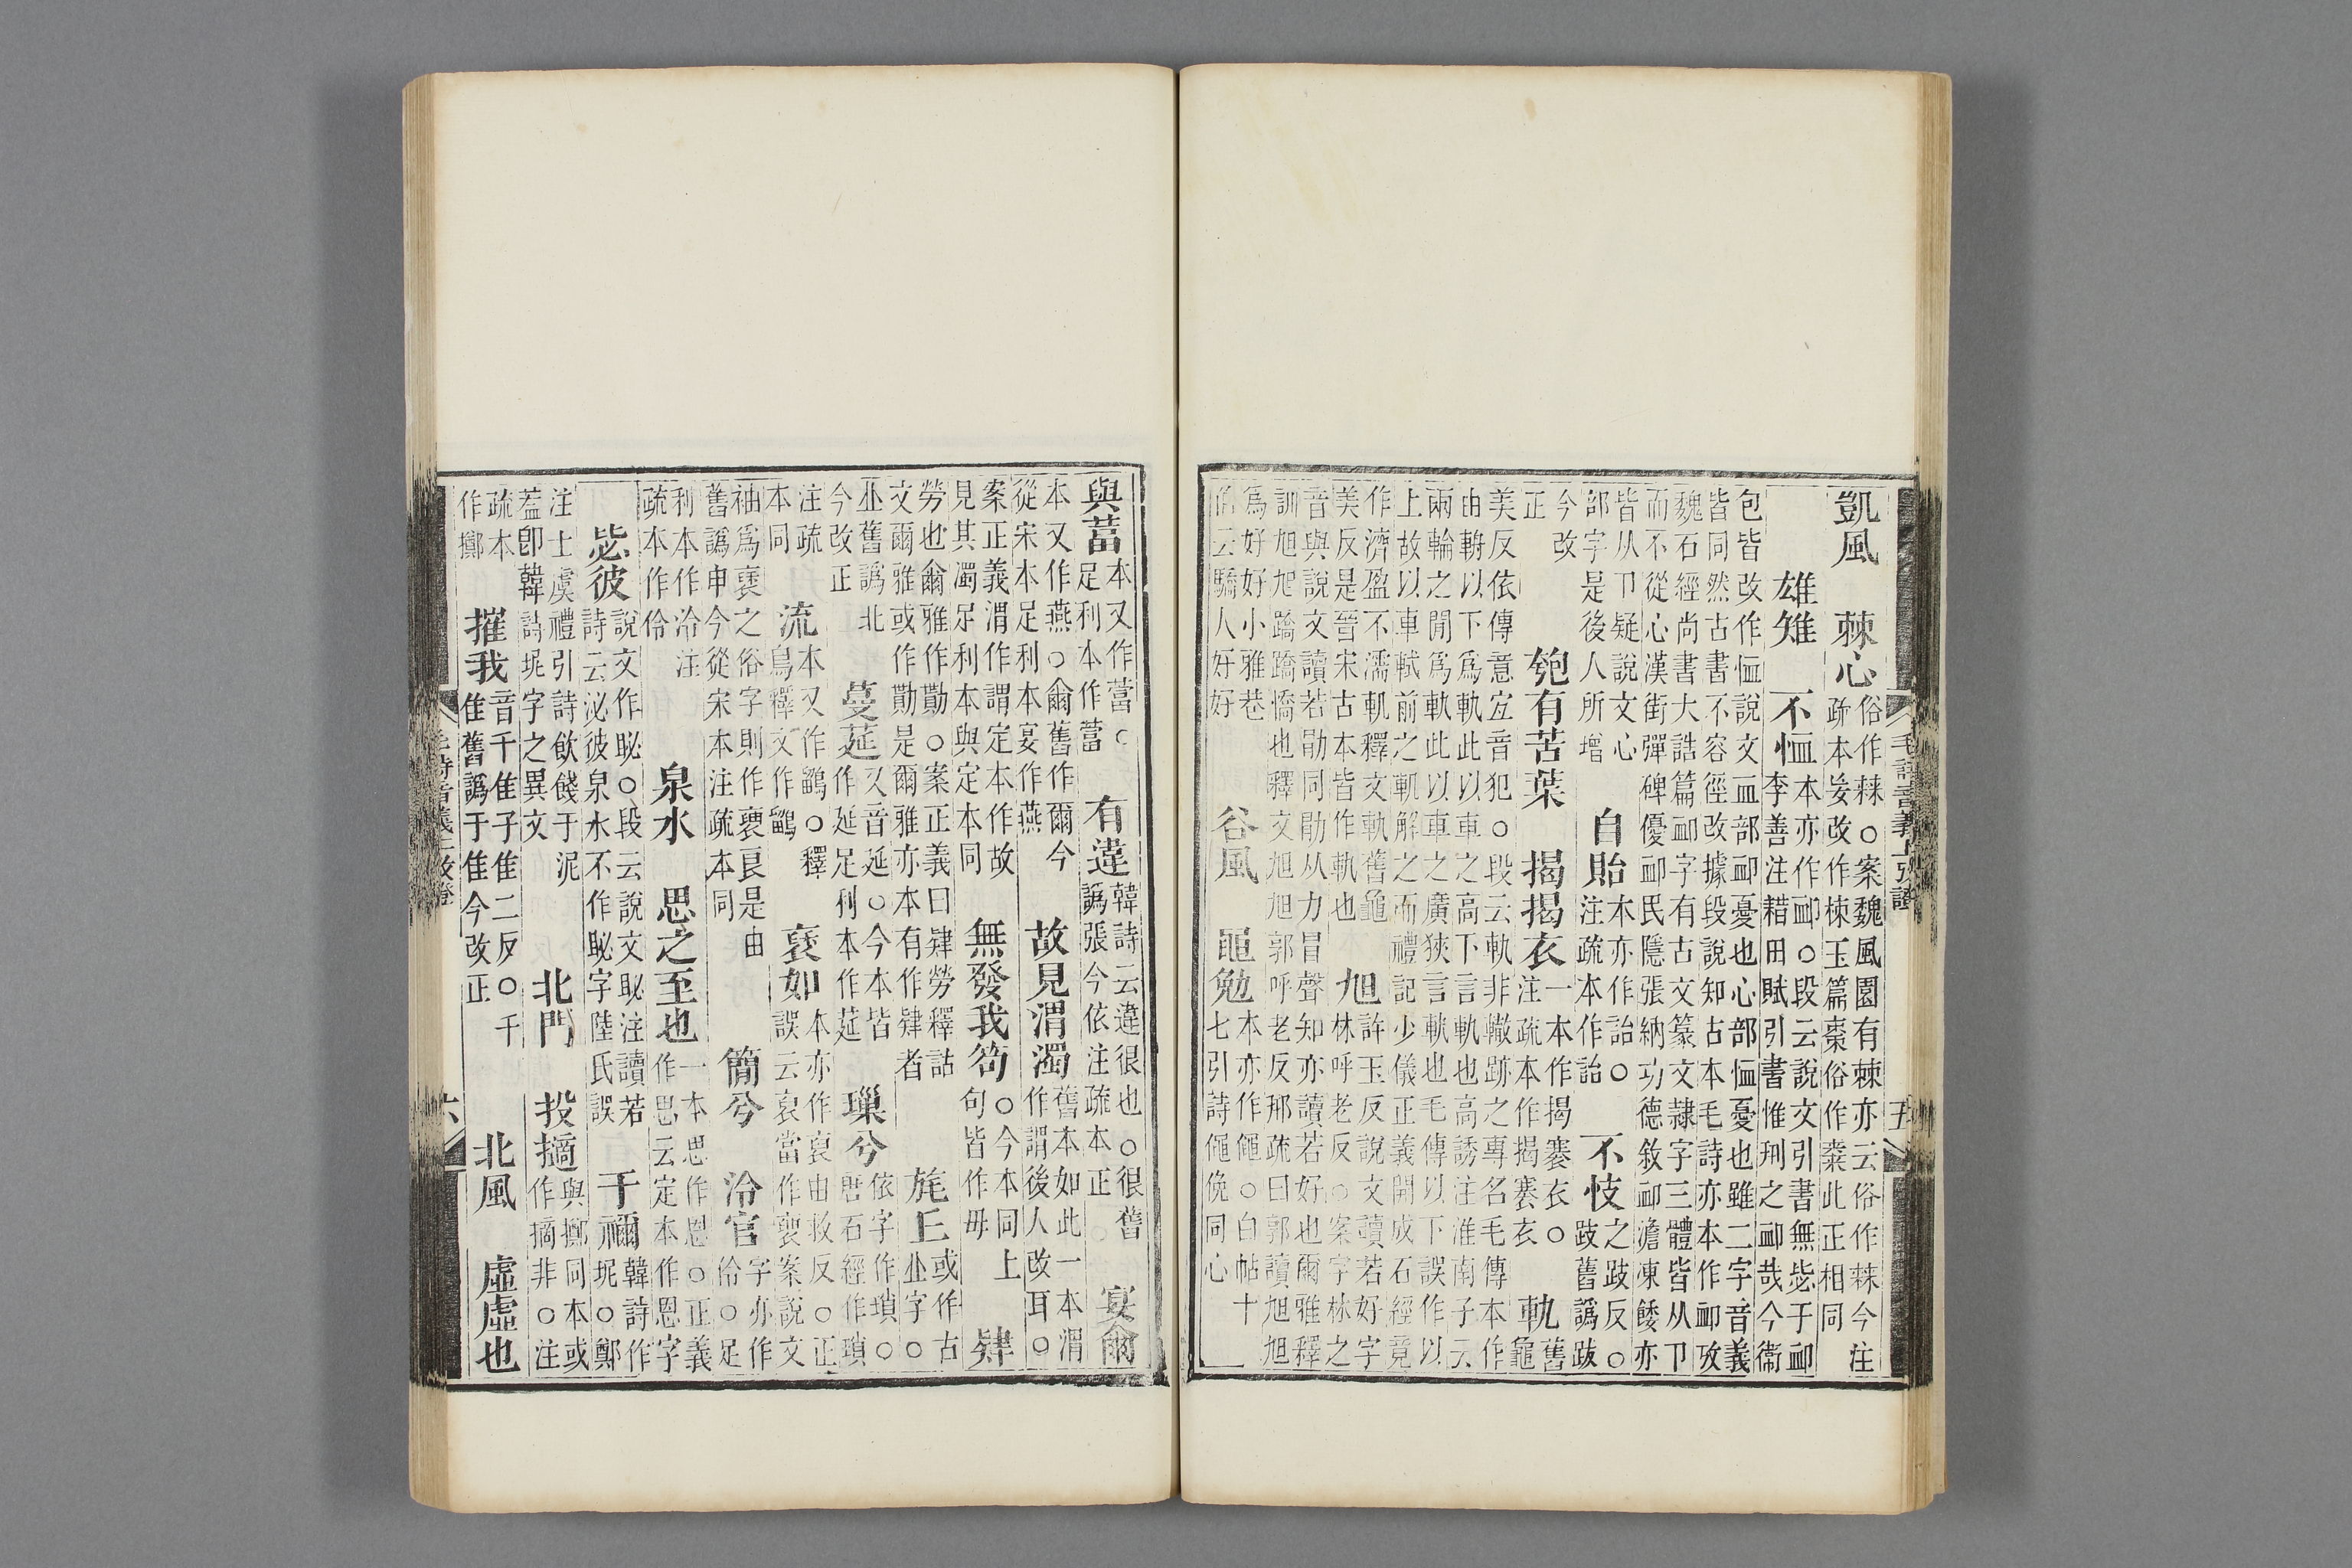 毛詩音義上攷證 五
凱風 棘心
俗作𣗥○案魏風園有棘亦云俗作𣗥今注
疏本妄改作棟玉篇棗俗作𣗥此正相同
雄雉 不恤
本亦作卹○段云說文引書無毖于卹
李善注耤田賦引書惟刑之卹哉今衞
包皆改作恤說文血部卹憂也心部恤憂也雖二字音義
皆同然古書不容徑改據段說知古本毛詩亦本作卹攷
魏石經尚書大誥篇卹字有古文篆文隸字三體皆从卩
而不從心漢街彈碑優卹民隱張納功德敘卹澹凍餧亦
皆从卩疑說文心
部字是後人所增
自貽
本亦作詒○
注疏本作詒
不忮
之跂反○
跂舊譌跋
今改
正
匏有苦葉 揭揭衣
一本作揭褰衣○
注疏本作揭褰衣
軌
舊
龜
美反依傳意宐音犯○段云軌非轍跡之專名毛傳本作
由輈以下爲軌此以車之高下言軌也高誘注淮南子云
兩輪之閒爲軌此以車之廣狹言軌也毛傳以下誤作以
上故以車軾前之軓解之而禮記少儀正義開成石經竟
作濟盈不濡軌釋文軌舊龜
美反是晉宋古本皆作軌也
旭
許玉反說文讀若好字
林呼老反○案字林之
音與說文讀若勖同勖从力冒聲知亦讀若好也爾雅釋
訓旭旭蹻蹻憍也釋文旭旭郭呼老反邢疏曰郭讀旭旭
爲好好小雅巷
伯云驕人好好
谷風 黽勉
本亦作僶○白帖十
七引詩僶俛同心
與葍
本又作葍○
足利本作當
有違
韓詩云違很也○很舊
譌張今依注疏本正
宴爾
本又作燕○爾舊作爾今
從宋本足利本宴作燕
故見渭濁
舊本如此一本渭
作謂後人改耳○
案正義渭作謂定本作故
見其濁足利本與定本同
無發我笱
○今本同上
句皆作毋
肄
勞也爾雅作勩○案正義曰肄勞釋詁
文爾雅或作勩是爾雅亦本有作肄者
旄丘
或作古
丠字○
丠舊譌北
今改正
蔓莚
又音延○今本皆
作延足利本作莚
璅兮
依字作瑣○
唐石經作瑣
注疏
本同
流
本又作鶹○釋
鳥釋文作鶹
褎如
本亦作裒由救反○正
誤云裒當作褎案說文
袖爲褎之俗字則作褎良是由
舊譌申今從宋本注疏本同
簡兮 泠官
字亦作
伶○足
利本作泠注
疏本作伶
泉水 思之至也
一本思作恩○正義
作思云定本作恩字
毖彼
說文作䀣○段云說文䀣注讀若
詩云泌彼泉水不作䀣字陸氏誤
于禰
韓詩作
坭○鄭
注士虞禮引詩飲餞于泥
葢卽韓詩坭字之異文
北門 投擿
與擲同本或
作摘非○注
疏本
作擲
摧我
音千隹子隹二反○千
隹舊譌于隹今改正
北風 虛虛也
毛詩音義上攷證 六